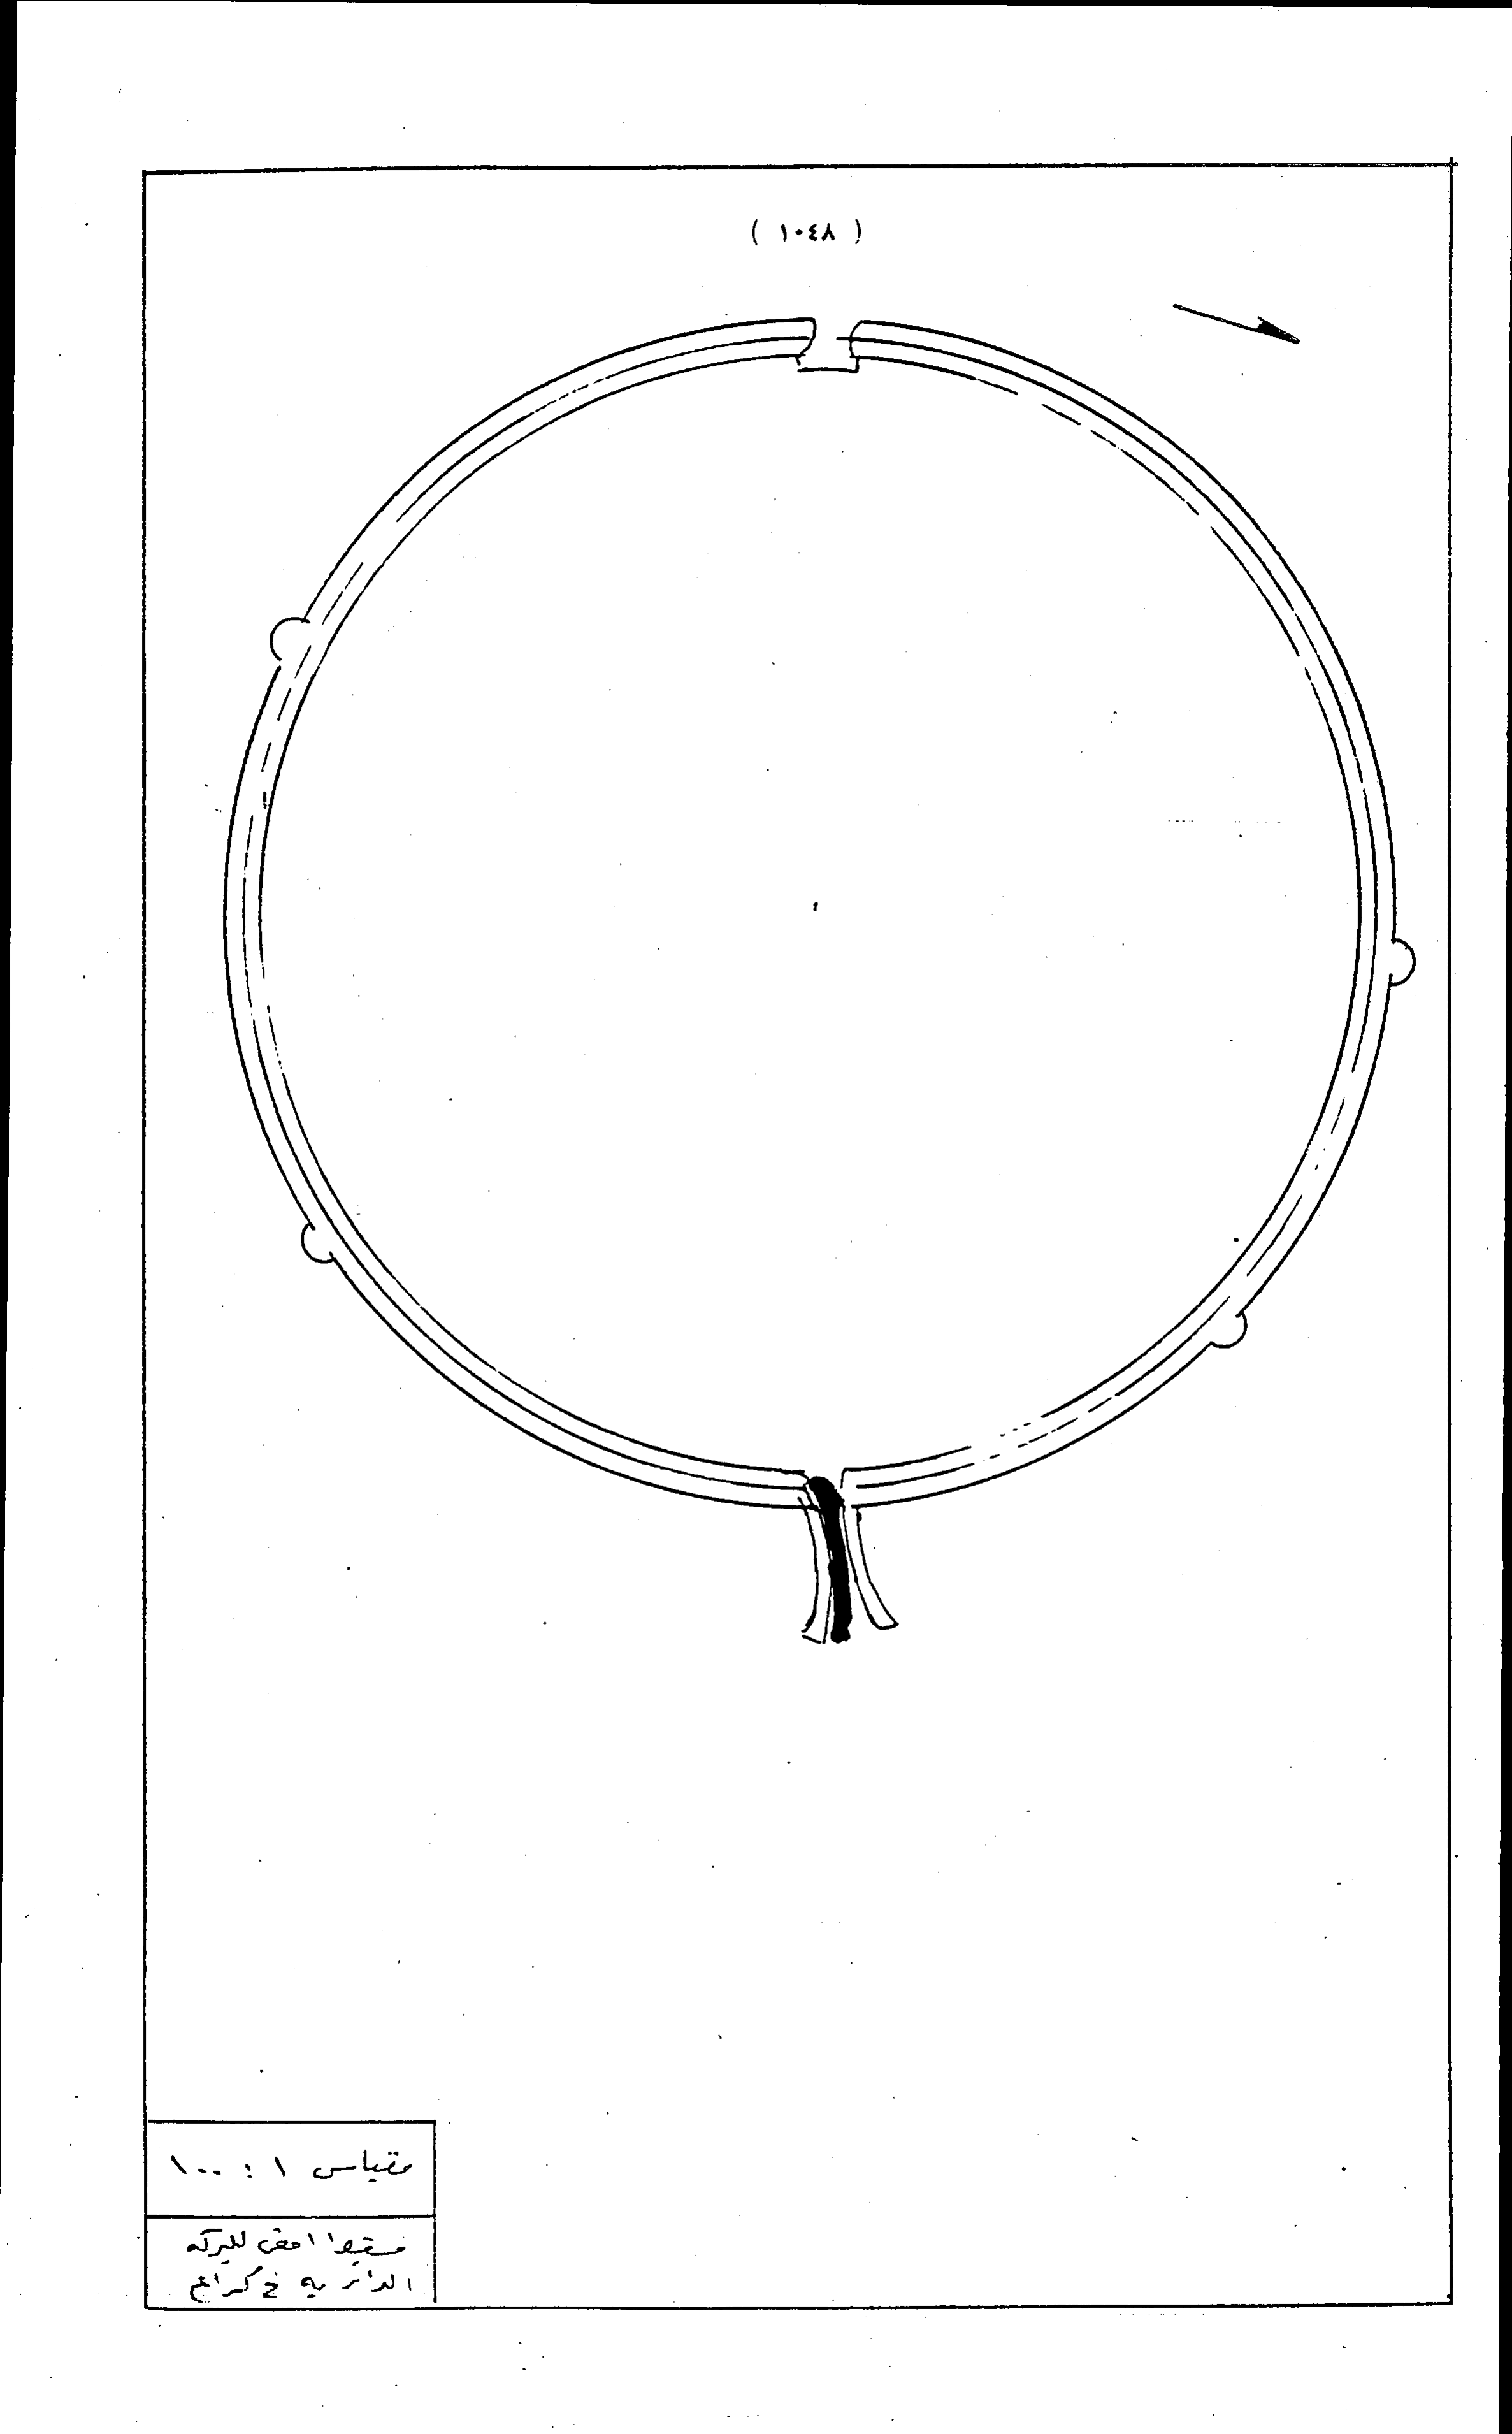 ( ١٠٤٨ )
مقياس ١ : ١٠٠
مسقط افقى للبركه
الدائريه فى كراع